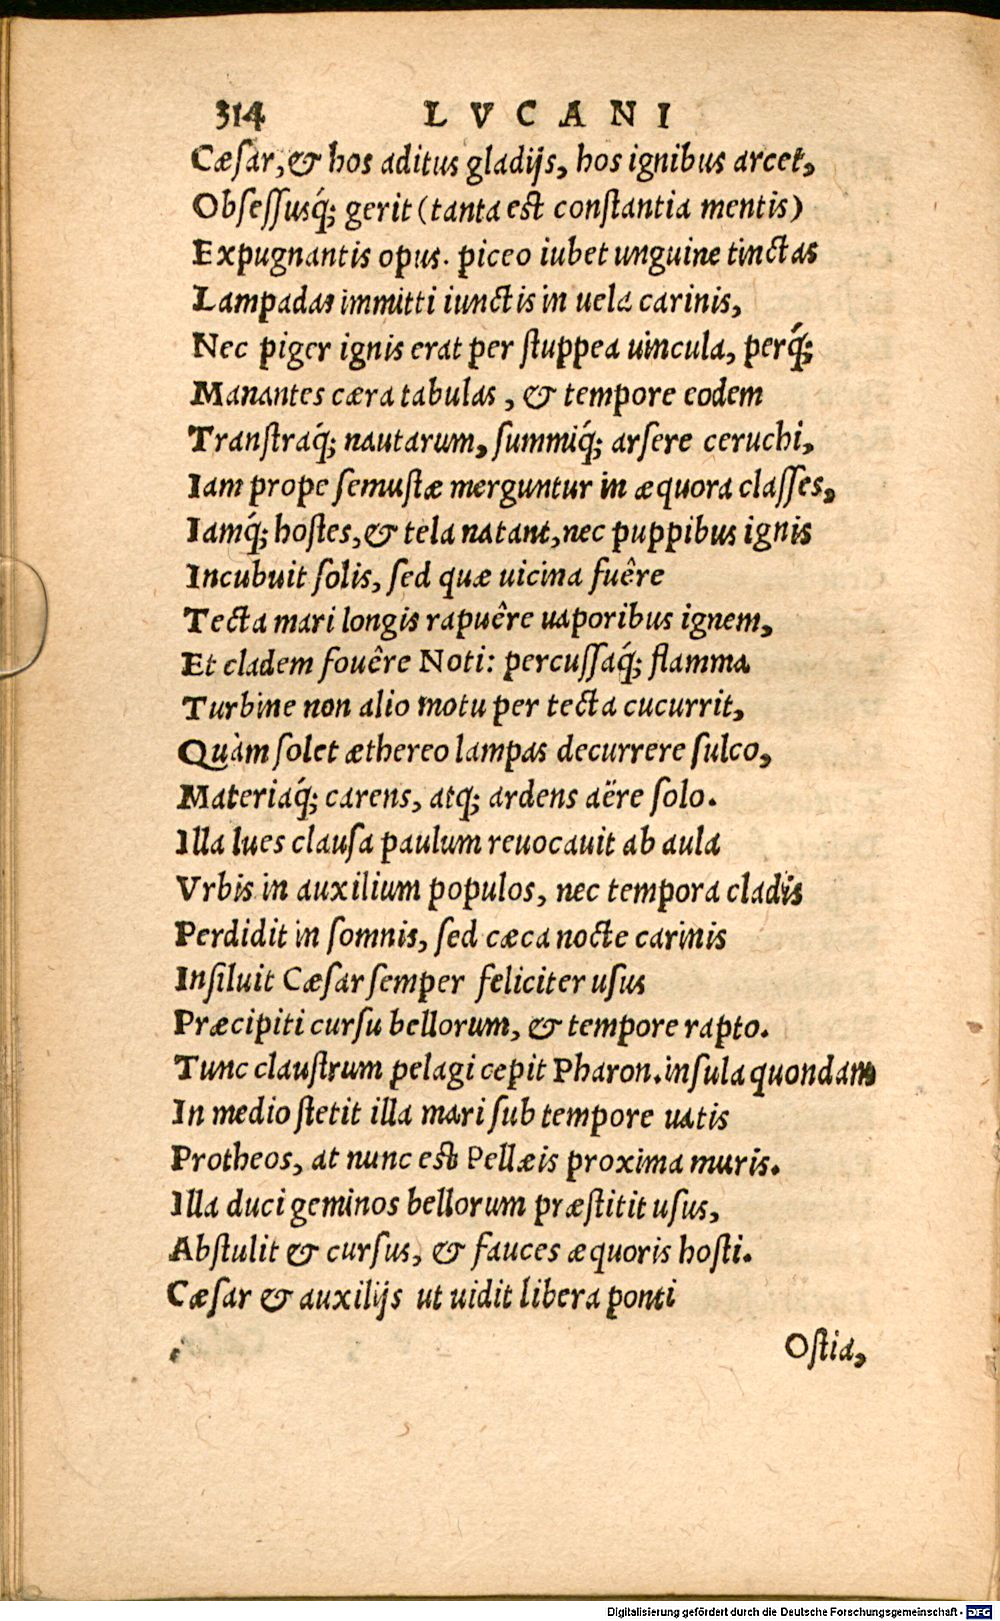 314 LVCANI
Cæſar, & hos aditus gladijs, hos ignibus arcet,
Obſeſſusq́; gerit (tanta est conſtantia mentis)
Expugnantis opus. piceo iubet unguine tinctas
Lampadas immitti iunctis in uela carinis,
Nec piger ignis erat per ſtuppea uincula, perq́;
Manantes cæra tabulas, & tempore eodem
Tranſtraq́; nautarum, ſummiq́; arſere ceruchi,
Iam prope ſemuſtæ merguntur in æquora claſſes,
Iamq́; hoſtes, & tela natant, nec puppibus ignis
Incubuit ſolis, ſed quæ uicina fuêre
Tecta mari longis rapuêre uaporibus ignem,
Et cladem fouêre Noti: percuſſaq́; flamma
Turbine non alio motu per tecta cucurrit,
Quàm ſolet æthereo lampas decurrere ſulco,
Materiaq́; carens, atq; ardens aëre ſolo.
Illa lues clauſa paulum reuocauit ab aula
Vrbis in auxilium populos, nec tempora cladis
Perdidit in ſomnis, ſed cæca nocte carinis
Inſiluit Cæſar ſemper feliciter uſus
Præcipiti curſu bellorum, & tempore rapto.
Tunc clauſtrum pelagi cepit Pharon. inſula quondam
In medio ſtetit illa mari ſub tempore uatis
Protheos, at nunc est Pellæis proxima muris.
Illa duci geminos bellorum præſtitit uſus,
Abſtulit & curſus, & fauces æquoris hoſti.
Cæſar & auxilijs ut uidit libera ponti
Oſtia,
Digitalisierung gefördert durch die Deutsche Forschungsgemeinschaft - DFG